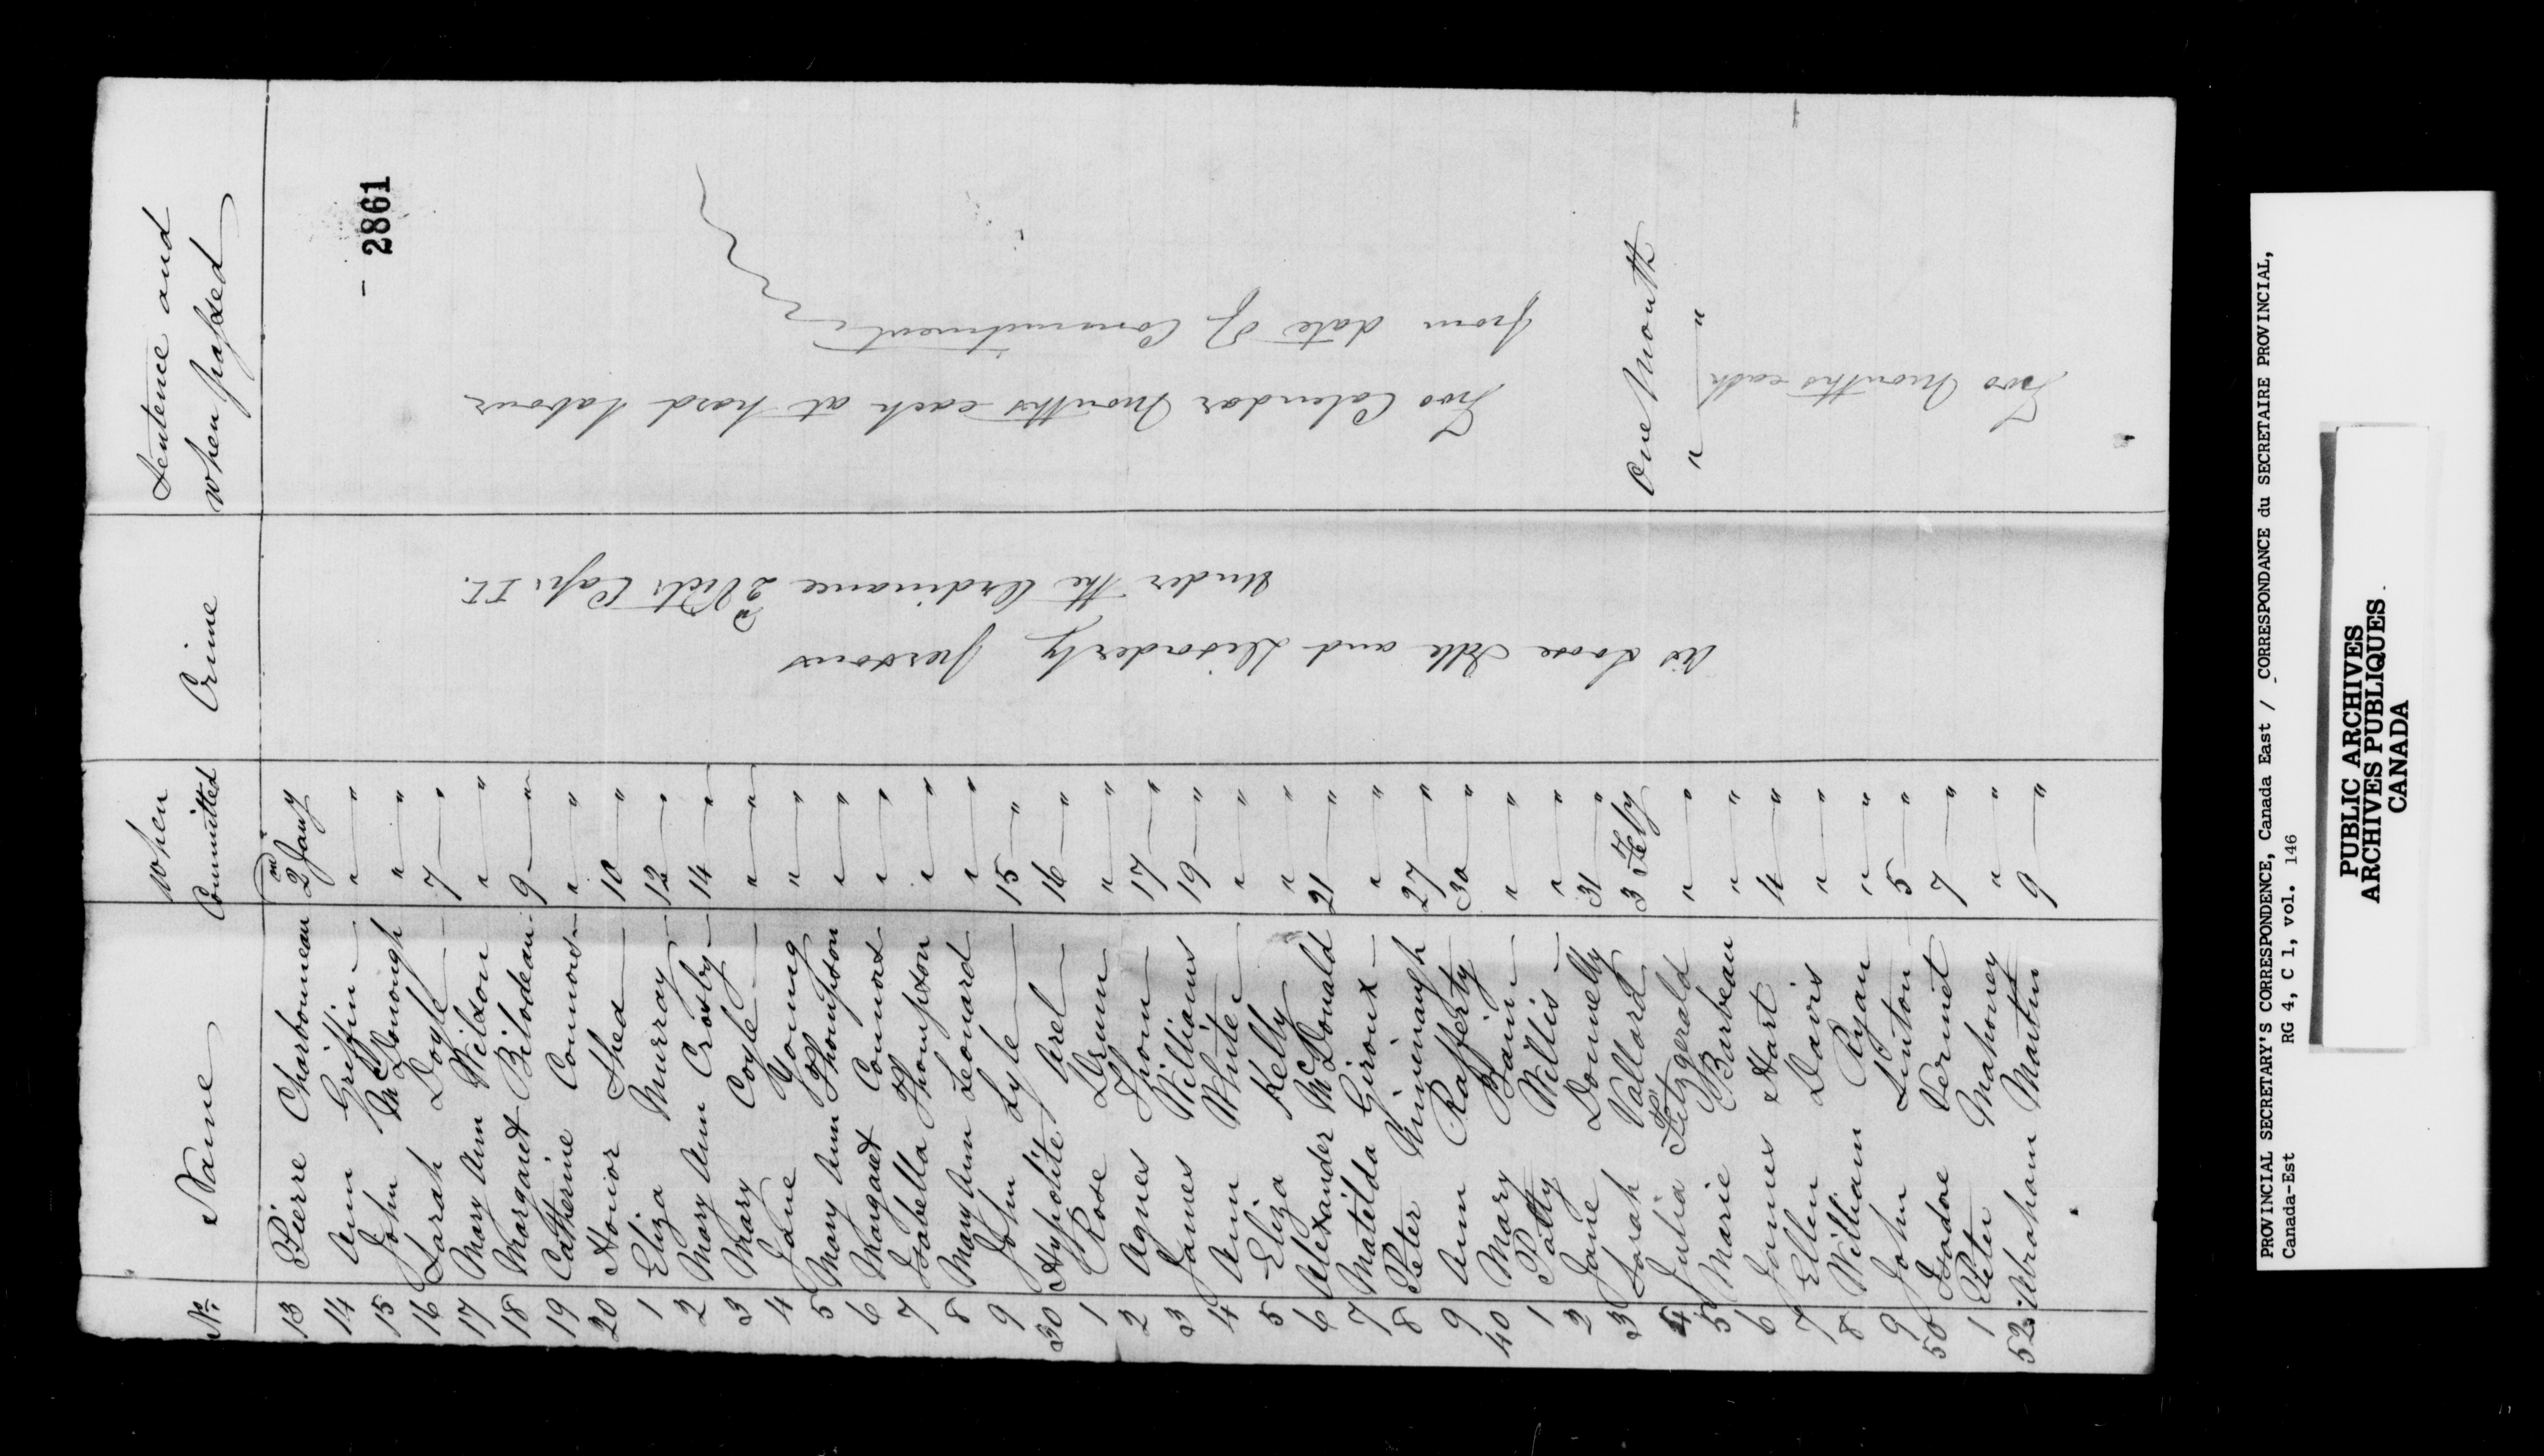 No. Name When Committed Crime Sentence and when passed
- 2861
13 Pierre Charbonneau 2nd Jany
14 Ann Griffin " "
15 John McDonough " "
16 Sarah Doyle 7 "
17 Mary Ann Wildon " "
18 Margaret Bilodeau 9 "
19 Catherine Connors " "
20 Honior Shea 10 "
1 Eliza Murray 12 "
2 Mary Ann Crosby 14 "
3 Mary Coyle " "
4 Jane Young " "
5 Mary Ann Thompson " "
6 Margaret Connors " "
7 Isabella Thompson " "
8 Mary Ann Leonard " "
9 John Lyle 15 "
30 Hypolite Arel 16 "
1 Rose Drum " "
2 Agnes Thom 17 "
3 James Williams 19 "
4 Ann White " "
5 Eliza Kelly " "
6 Alexander McDonald 21 "
7 Matilda Giroux " "
8 Peter 27 "
9 Ann Rafferty 30 "
40 Mary Bain " "
1 Patty Willis " "
2 Jane Donnelly 31 "
3 Sarah Vallard 3 Feby One Month
4 Julia Fitzgerald " " " "
5 Marie Barbeau " "
6 James Hart 4 "
7 Ellen Davis " "
8 William Ryan " "
9 John Linton 5 "
50 Isodore Vermet 7 "
1 Peter Mahoney " "
52 Abraham Martin 9 "
As Loose Idle and disorderly persons
Under the Ordinance 2d Vict: Cap: II.
Two Calendar Months each at hard labour
from date of Commitment
Two Months each
PROVINCIAL SECRETARY'S CORRESPONDENCE, Canada East / CORRESPONDANCE du SECRETAIRE PROVINCIAL,
Canada-Est RG 4, C 1, vol. 146
PUBLIC ARCHIVES
ARCHIVES PUBLIQUES
CANADA